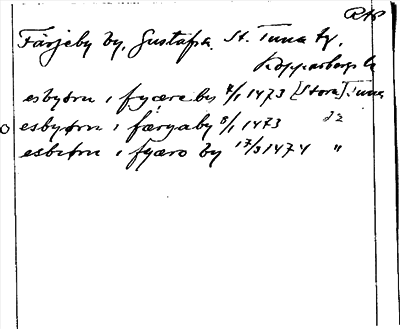 RAP
Färjeby by, Gustafs s. St. Tuna tg,
Kopparbergs l.
esbyørn i fyære by 7/1 1473 [Stora] Tuna
esbyørn i færyaby 8/1 1473
esbiørn i fyæro by 17/3 1474 "